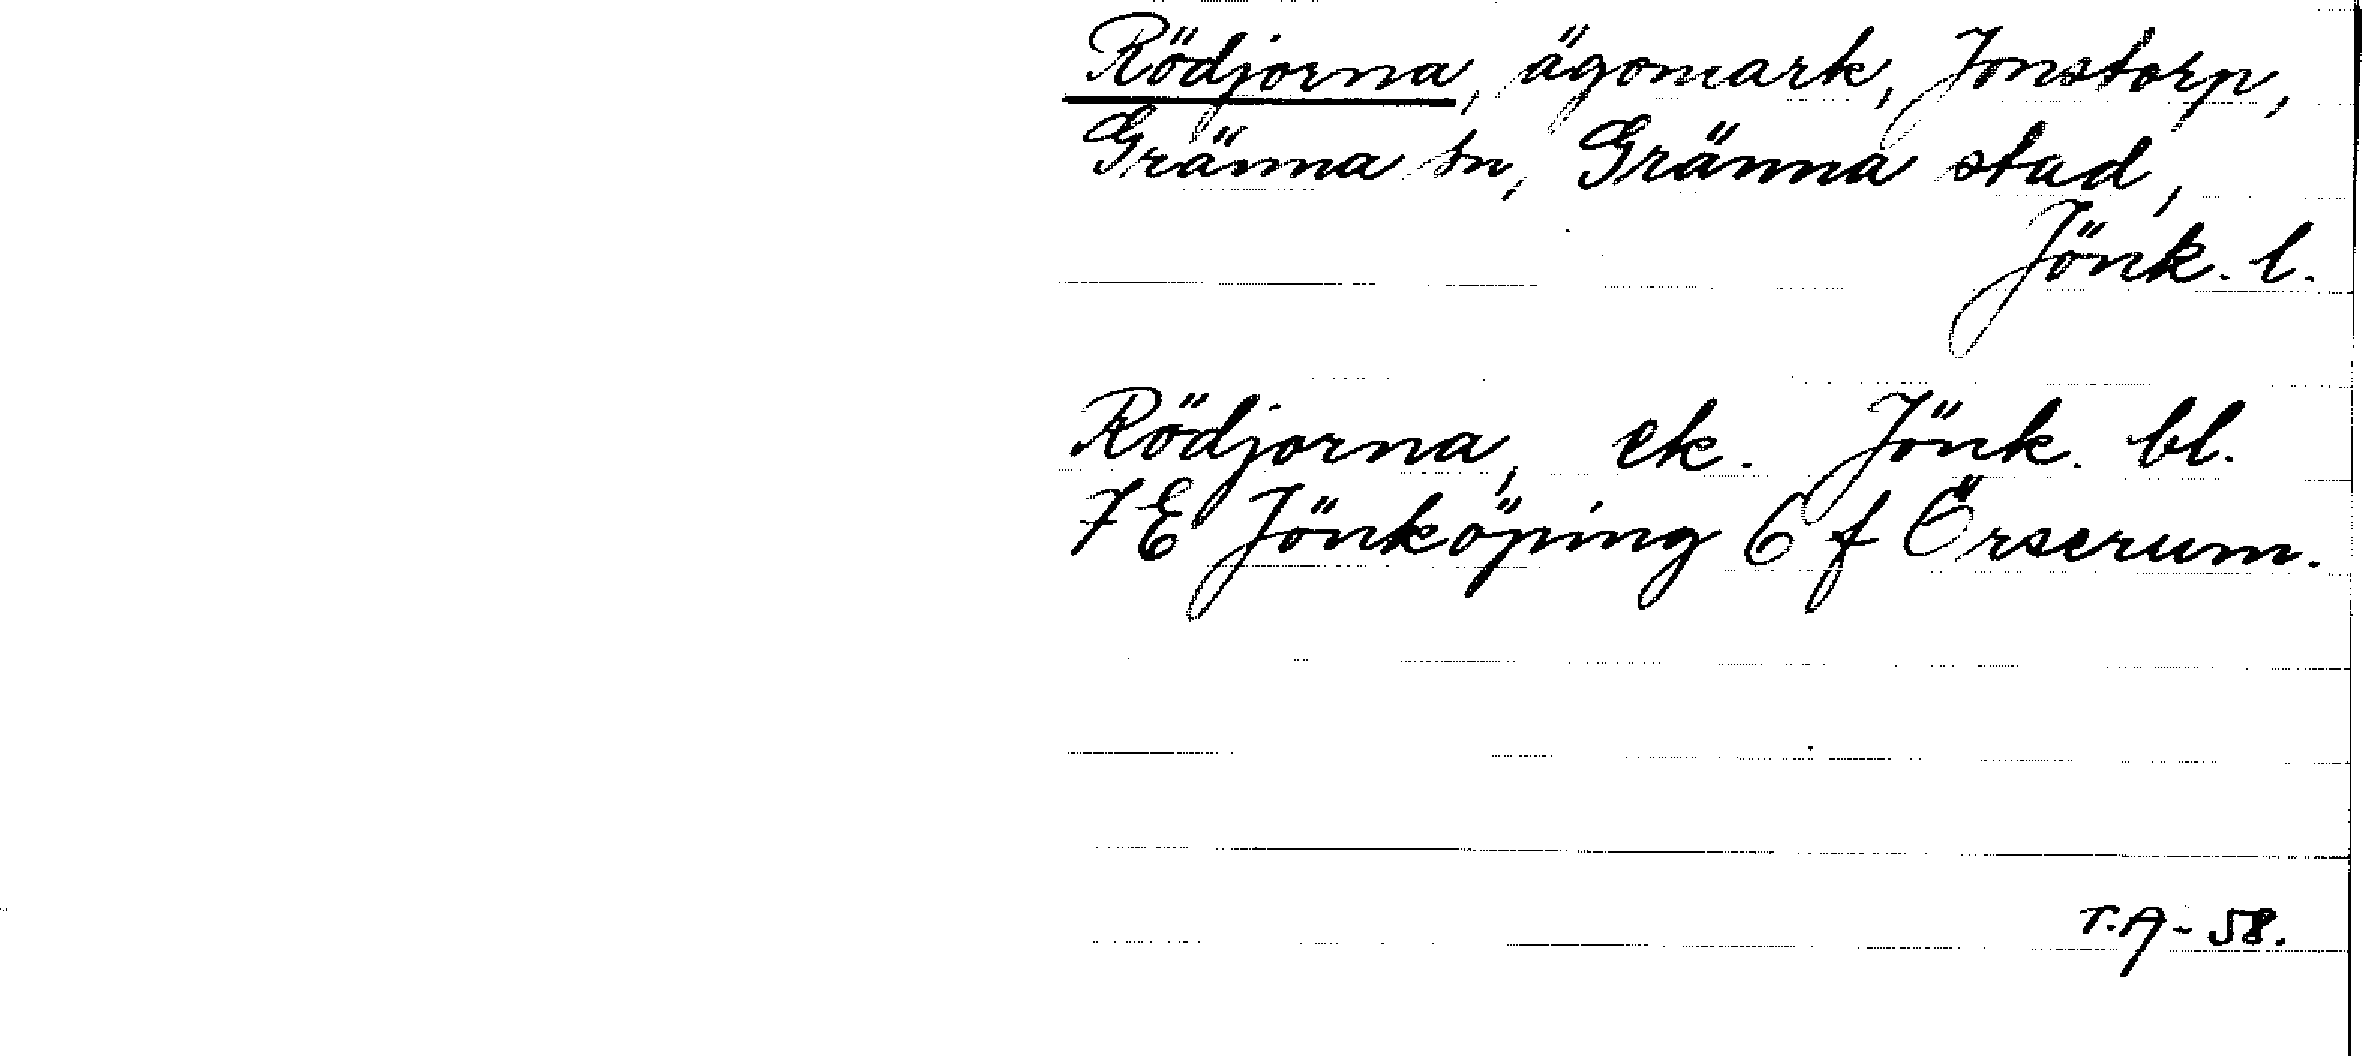 Rödjorna, ägomark, Jonstorp,
Gränna sn, Gränna stad,
Jönk. l.
Rödjorna, ek. Jönk. bl.
7E Jönköping 6 f Örserum.
T.A - 58.